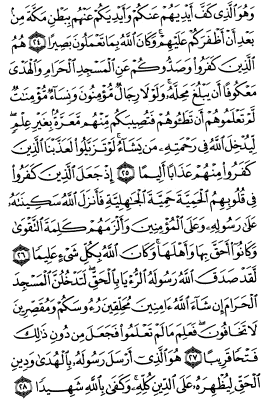 وَهُوَ ٱلَّذِى كَفَّ أَيْدِيَهُمْ عَنكُمْ وَأَيْدِيَكُمْ عَنْهُم بِبَطْنِ مَكَّةَ مِنۢ
بَعْدِ أَنْ أَظْفَرَكُمْ عَلَيْهِمْ ۚ وَكَانَ ٱللَّهُ بِمَا تَعْمَلُونَ بَصِيرًا ٢٤ هُمُ
ٱلَّذِينَ كَفَرُوا۟ وَصَدُّوكُمْ عَنِ ٱلْمَسْجِدِ ٱلْحَرَامِ وَٱلْهَدْىَ
مَعْكُوفًا أَن يَبْلُغَ مَحِلَّهُۥ ۚ وَلَوْلَا رِجَالٌ مُّؤْمِنُونَ وَنِسَآءٌ مُّؤْمِنَـٰتٌ
لَّمْ تَعْلَمُوهُمْ أَن تَطَـُٔوهُمْ فَتُصِيبَكُم مِّنْهُم مَّعَرَّةٌۢ بِغَيْرِ عِلْمٍ ۖ
لِّيُدْخِلَ ٱللَّهُ فِى رَحْمَتِهِۦ مَن يَشَآءُ ۚ لَوْ تَزَيَّلُوا۟ لَعَذَّبْنَا ٱلَّذِينَ
كَفَرُوا۟ مِنْهُمْ عَذَابًا أَلِيمًا ٢٥ إِذْ جَعَلَ ٱلَّذِينَ كَفَرُوا۟
فِى قُلُوبِهِمُ ٱلْحَمِيَّةَ حَمِيَّةَ ٱلْجَـٰهِلِيَّةِ فَأَنزَلَ ٱللَّهُ سَكِينَتَهُۥ
عَلَىٰ رَسُولِهِۦ وَعَلَى ٱلْمُؤْمِنِينَ وَأَلْزَمَهُمْ كَلِمَةَ ٱلتَّقْوَىٰ
وَكَانُوٓا۟ أَحَقَّ بِهَا وَأَهْلَهَا ۚ وَكَانَ ٱللَّهُ بِكُلِّ شَىْءٍ عَلِيمًا ٢٦
لَّقَدْ صَدَقَ ٱللَّهُ رَسُولَهُ ٱلرُّءْيَا بِٱلْحَقِّ ۖ لَتَدْخُلُنَّ ٱلْمَسْجِدَ
ٱلْحَرَامَ إِن شَآءَ ٱللَّهُ ءَامِنِينَ مُحَلِّقِينَ رُءُوسَكُمْ وَمُقَصِّرِينَ
لَا تَخَافُونَ ۖ فَعَلِمَ مَا لَمْ تَعْلَمُوا۟ فَجَعَلَ مِن دُونِ ذَٰلِكَ
فَتْحًا قَرِيبًا ٢٧ هُوَ ٱلَّذِىٓ أَرْسَلَ رَسُولَهُۥ بِٱلْهُدَىٰ وَدِينِ
ٱلْحَقِّ لِيُظْهِرَهُۥ عَلَى ٱلدِّينِ كُلِّهِۦ ۚ وَكَفَىٰ بِٱللَّهِ شَهِيدًا ٢٨